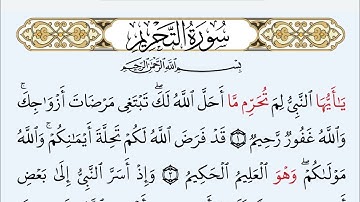 سُورَةُ التَّحْرِيمِ
بِسْمِ اللَّهِ الرَّحْمَٰنِ الرَّحِيمِ
يَٰٓأَيُّهَا ٱلنَّبِىُّ لِمَ تُحَرِّمُ مَآ أَحَلَّ ٱللَّهُ لَكَ ۖ تَبْتَغِى مَرْضَاتَ أَزْوَٰجِكَ ۚ
وَٱللَّهُ غَفُورٌ رَّحِيمٌ ١ قَدْ فَرَضَ ٱللَّهُ لَكُمْ تَحِلَّةَ أَيْمَٰنِكُمْ ۚ وَٱللَّهُ
مَوْلَىٰكُمْ ۖ وَهُوَ ٱلْعَلِيمُ ٱلْحَكِيمُ ٢ وَإِذْ أَسَرَّ ٱلنَّبِىُّ إِلَىٰ بَعْضِ